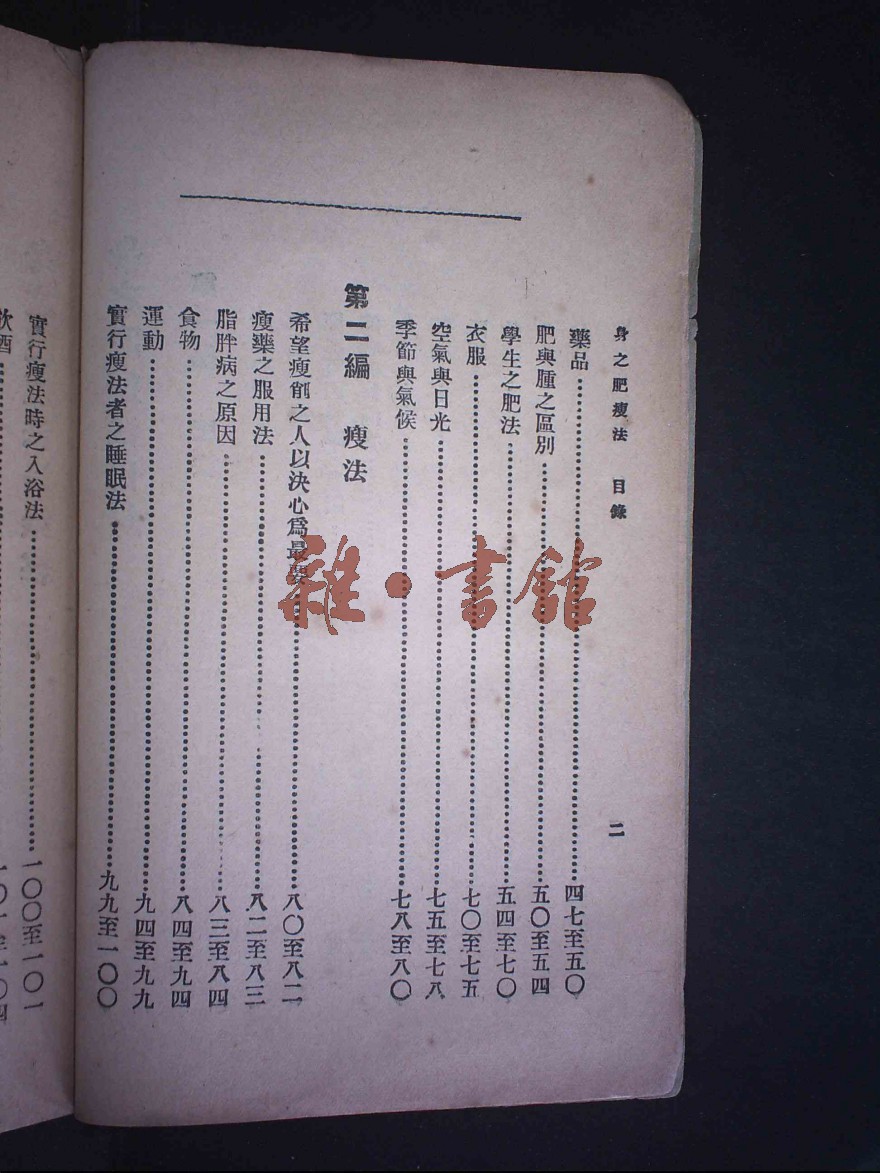 身之肥瘦法 目錄 二
藥品 四七至五〇
肥與腫之區別 五〇至五四
學生之肥法 五四至七〇
衣服 七〇至七五
空氣與日光 七五至七八
季節與氣候 七八至八〇
第二編 瘦法
希望瘦削之人以決心爲最 八〇至八二
瘦藥之服用法 八二至八三
脂胖病之原因 八三至八四
食物 八四至九四
運動 九四至九九
實行瘦法者之睡眠法 九九至一〇〇
實行瘦法時之入浴法 一〇〇至一〇一
飲酒 一〇一至一〇四
雜·書館